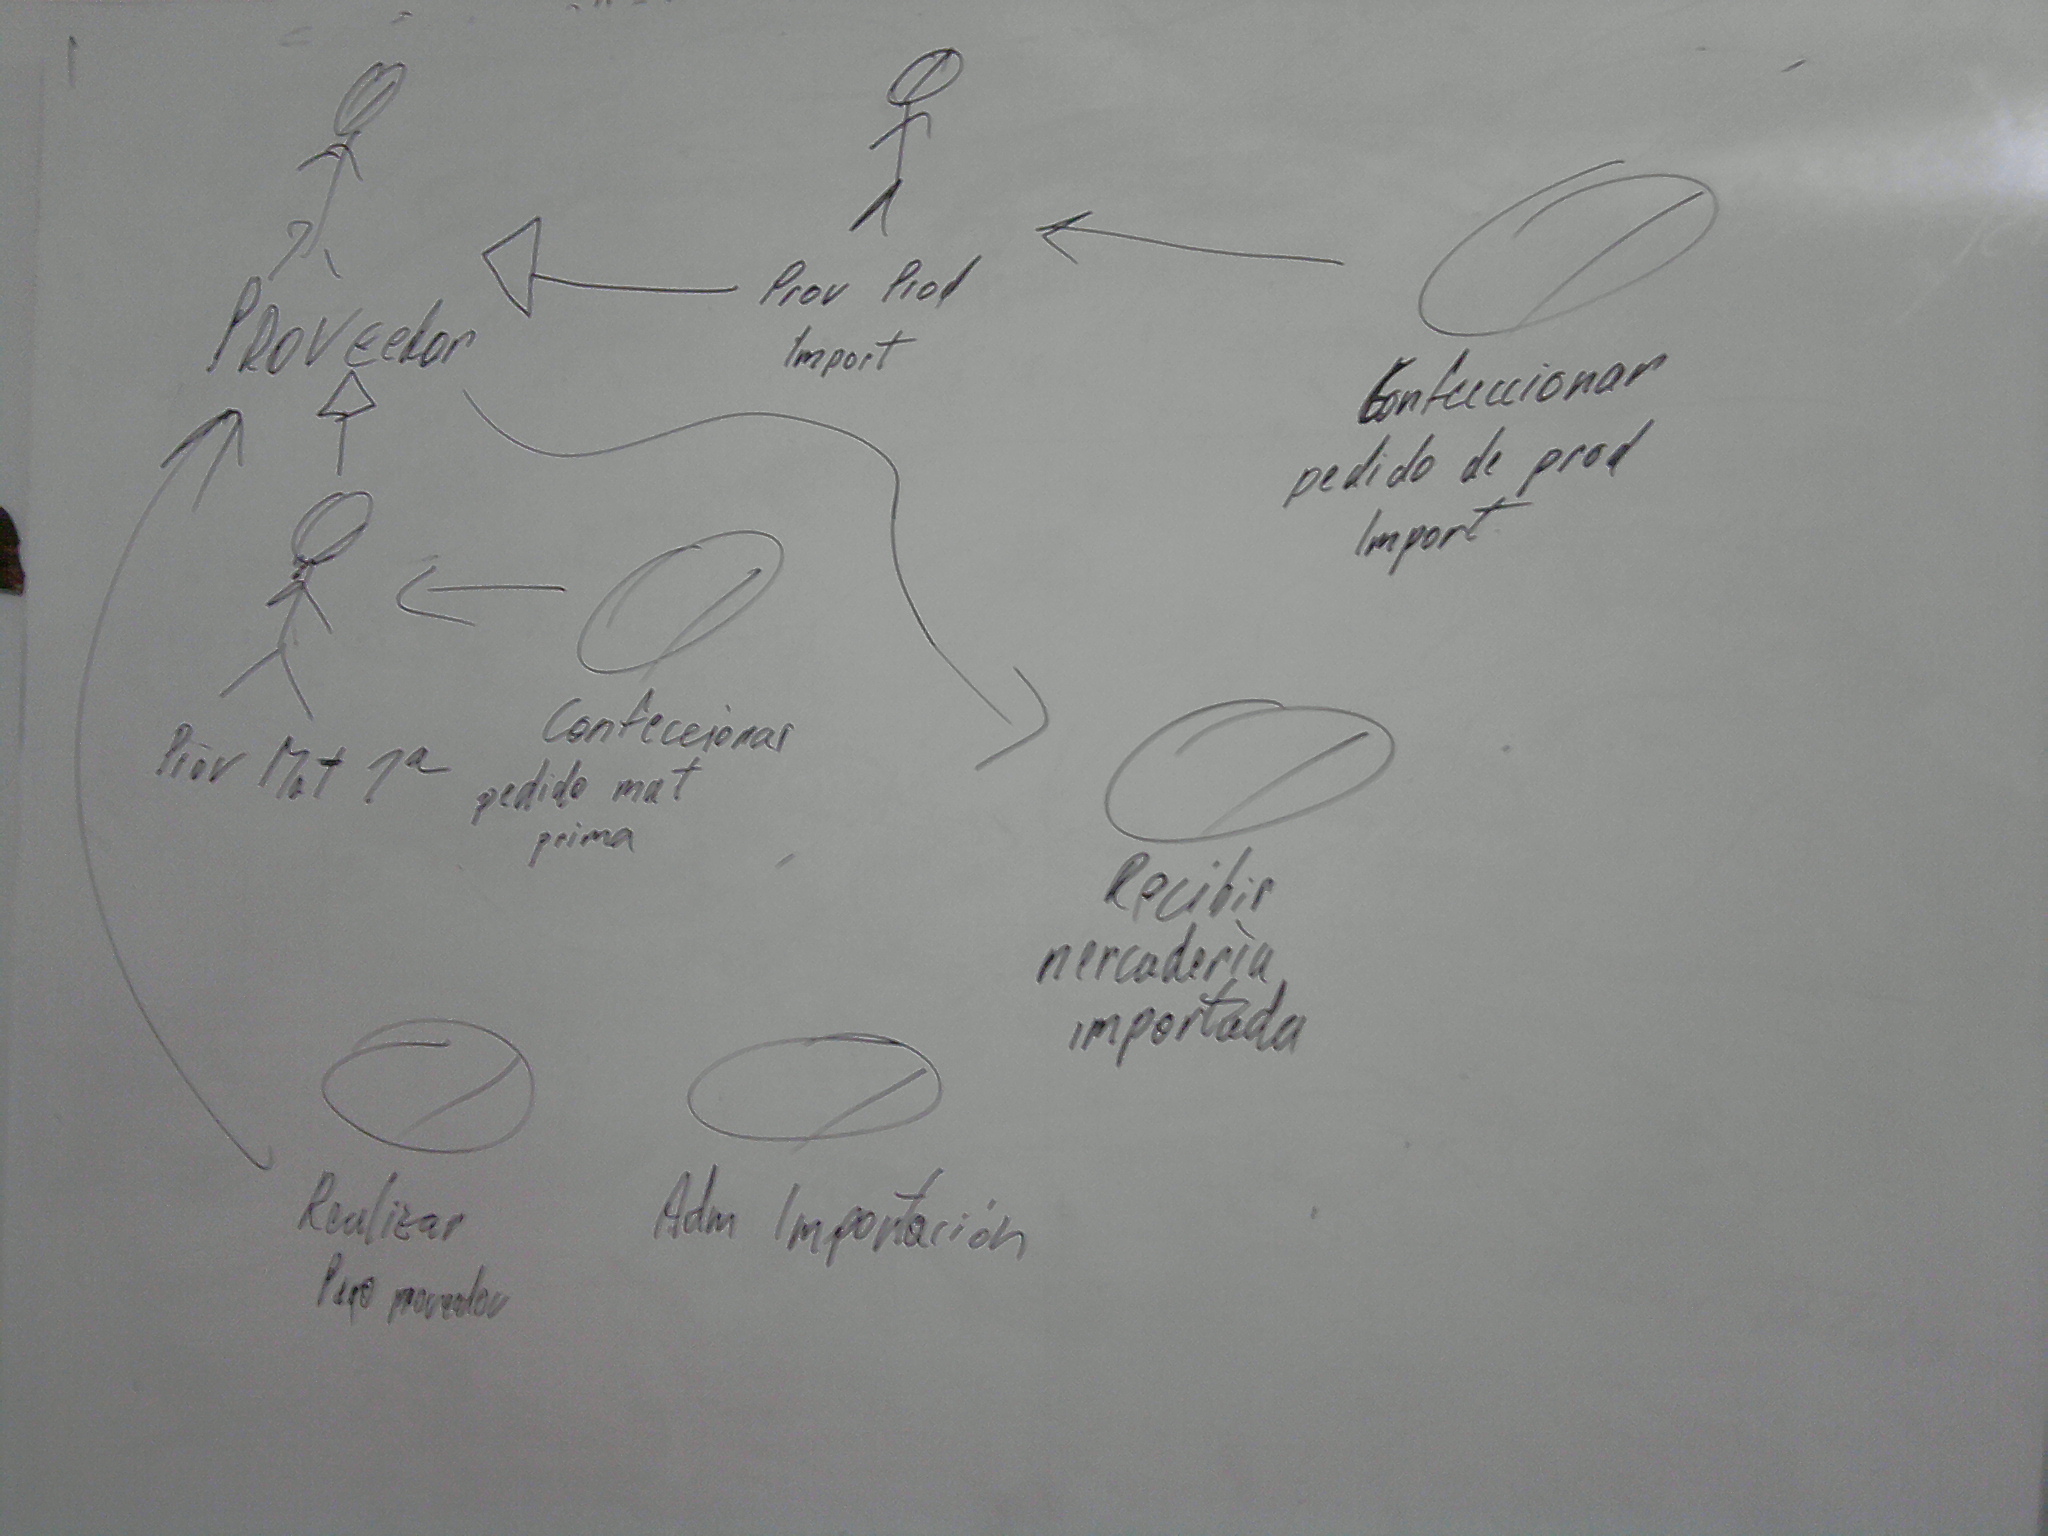 PROVEEdor
Prov Prod
Import
Confeccionar
pedido de prod
Import
Prov Mat 1ª
Confeccionar
pedido mat
prima
Recibir
mercadería
importada
Realizar
Pago proveedor
Adm Importación